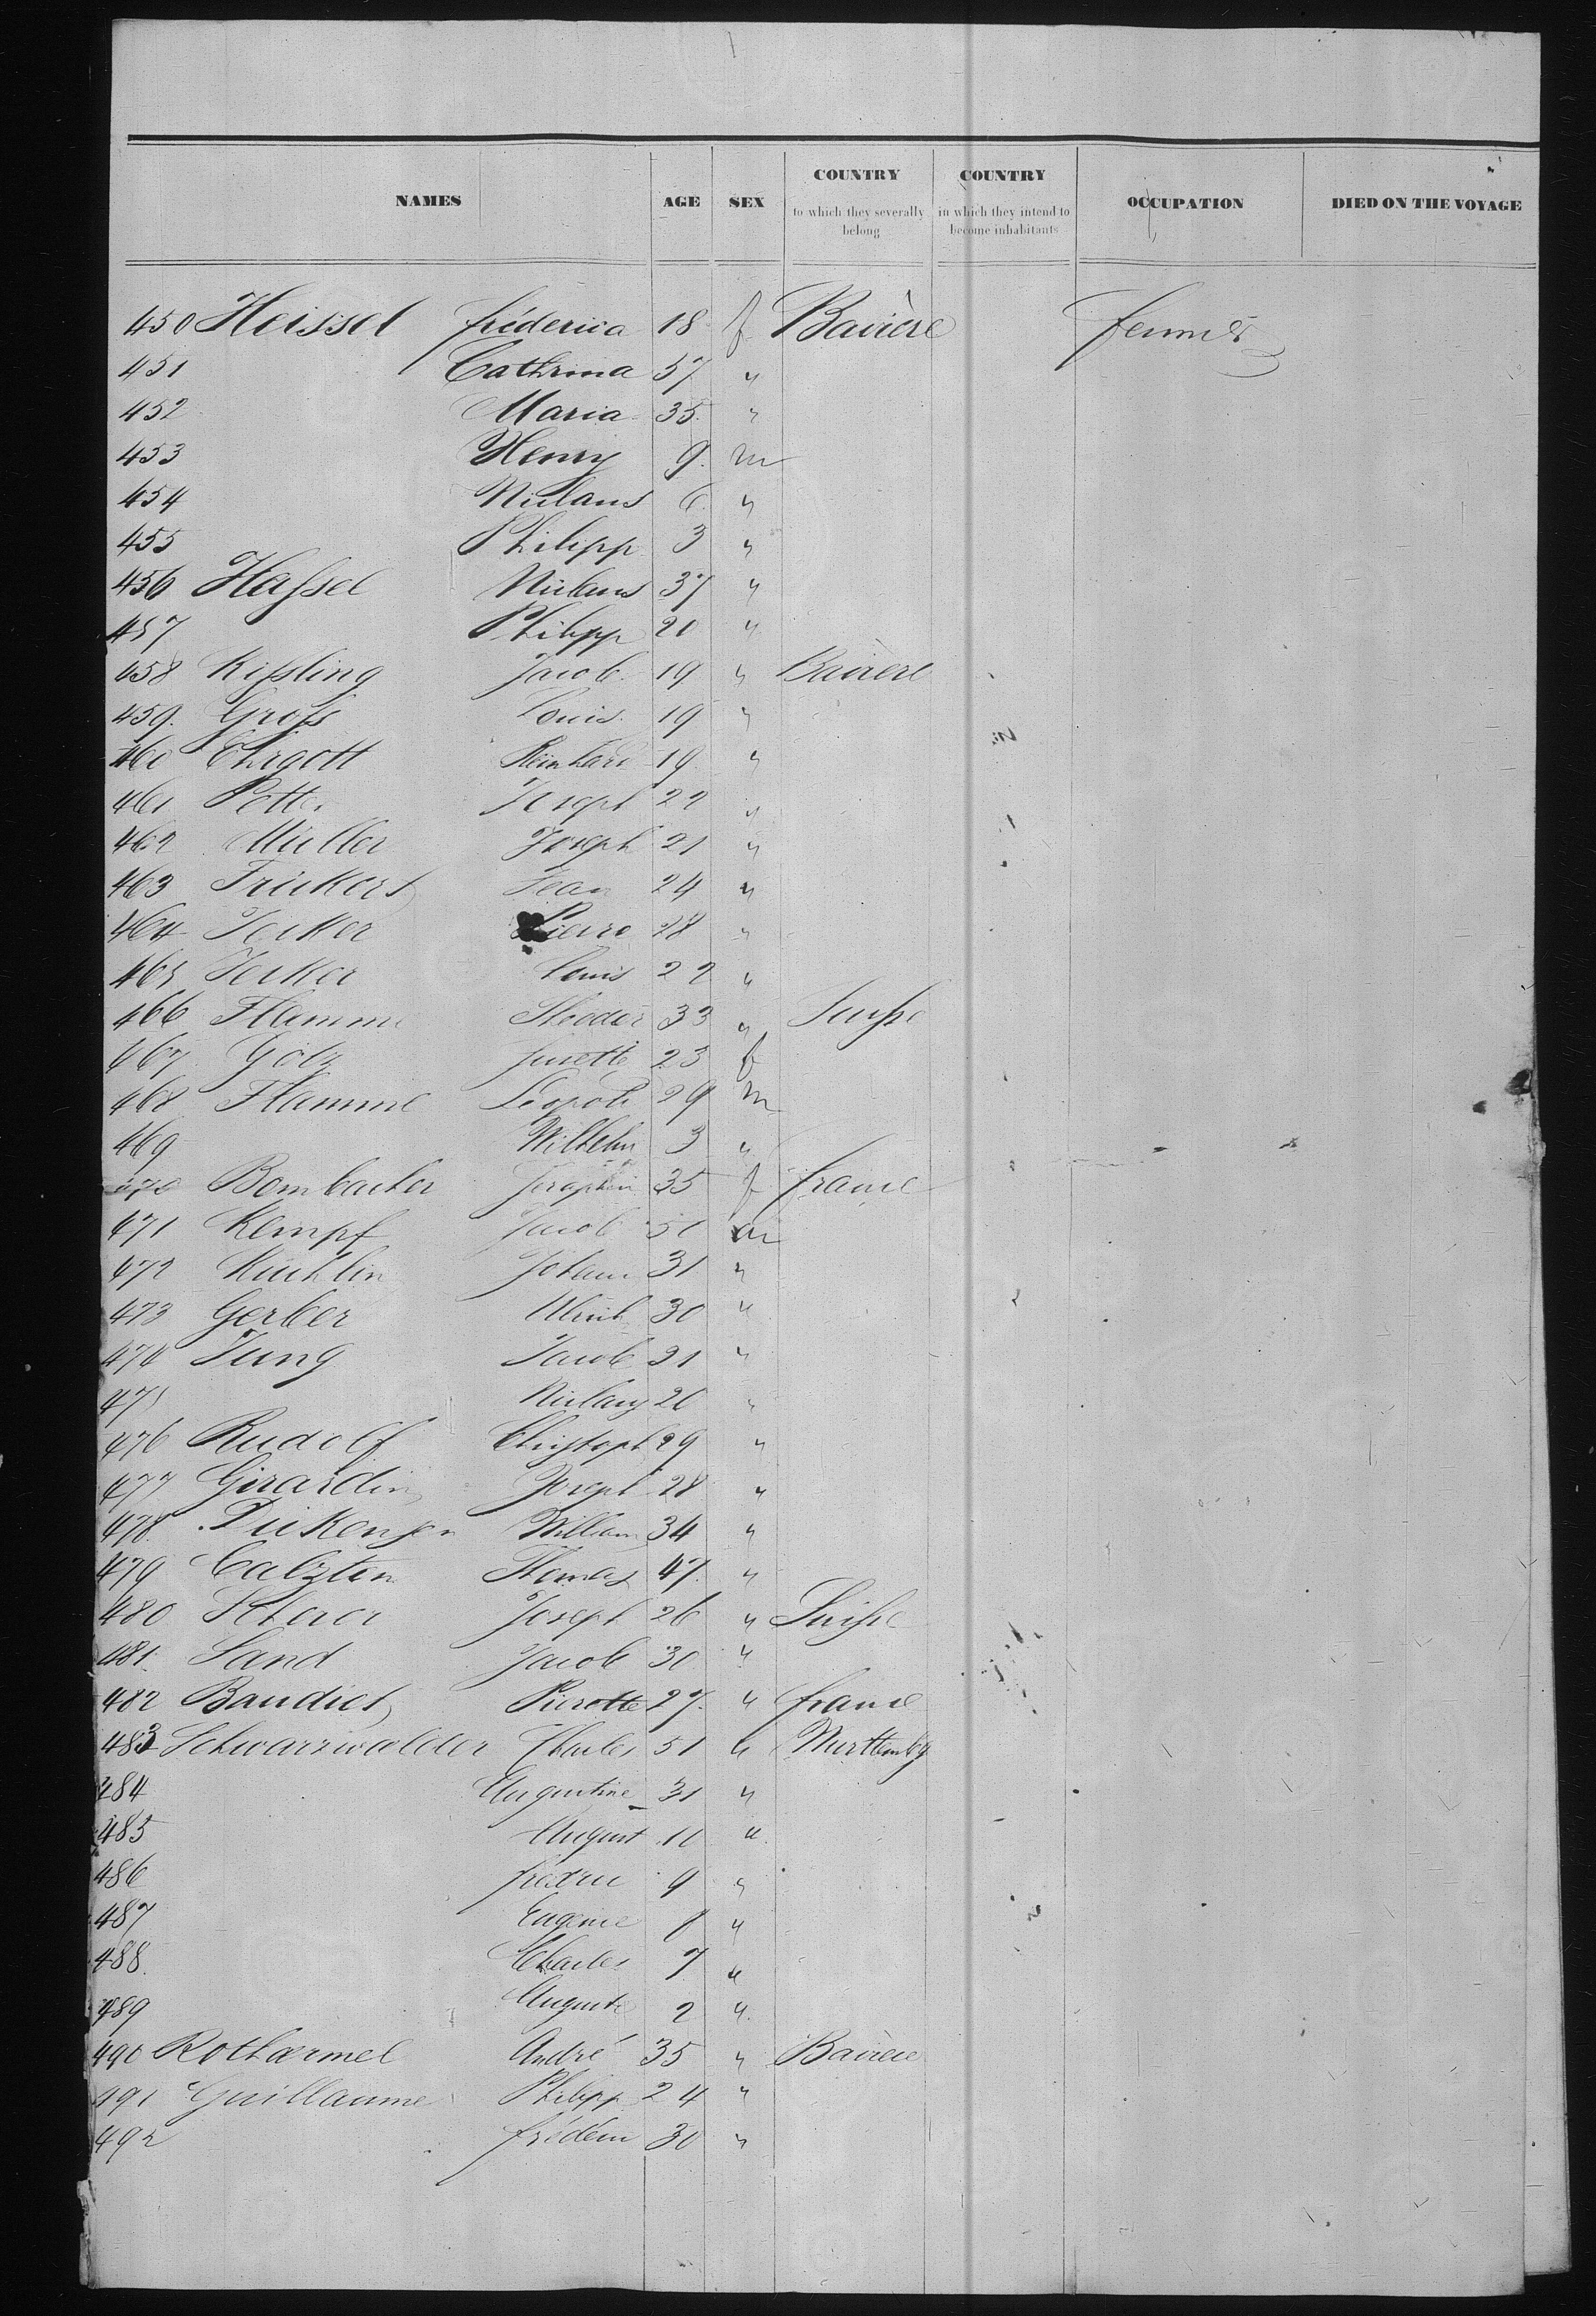 NAMES AGE SEX COUNTRY to which they severally belong COUNTRY in which they intend to become inhabitants OCCUPATION DIED ON THE VOYAGE
450 Heissel fréderica 18 f Bavière
451 Cathrina 57 "
452 Maria 35 "
453 Henry 9 m
454 Niclaus 6 "
455 Philipp 3 "
456 Hassel Niclaus 37 "
457 Philipp 20 "
458 Kissling Jacob 19 " Bavière
459 Gross Louis 19 "
460 Ehrgott Reinhard 19 "
461 Potter Joseph 22 "
462 Müller Joseph 21 "
463 Jean 24 "
464 Jecker Pierre 28 "
465 Jecker Louis 22 "
466 Flamme Theodor 33 " Suisse
467 Götz 23 f
468 Flamme Leopold 29 m
469 Wilhelm 3 "
470 Bombacher Seraphin 35 f france
471 Kempf Jacob 51 m
472 Küchlin Johann 31 "
473 Gerber Ulrich 30 "
474 Jung Jacob 31 "
475 Niclaus 20 "
476 Rudolf Christoph 29 "
477 Girardin Joseph 28 "
478 Dickenson William 34 "
479 Thomas 47 "
480 Scherer Joseph 26 " Suisse
481 Sand Jacob 30 "
482 Baudict Pierotte 27 " france
483 Schwarzwaelder Charles 51 " Wurttembg
484 Augustine 31 "
485 August 10 "
486 9 "
487 Eugenie 8 "
488 Charles 7 "
489 Auguste 2 "
490 Rotharmel André 35 " Bavière
491 Guillaume Philipp 24 "
492 30 "